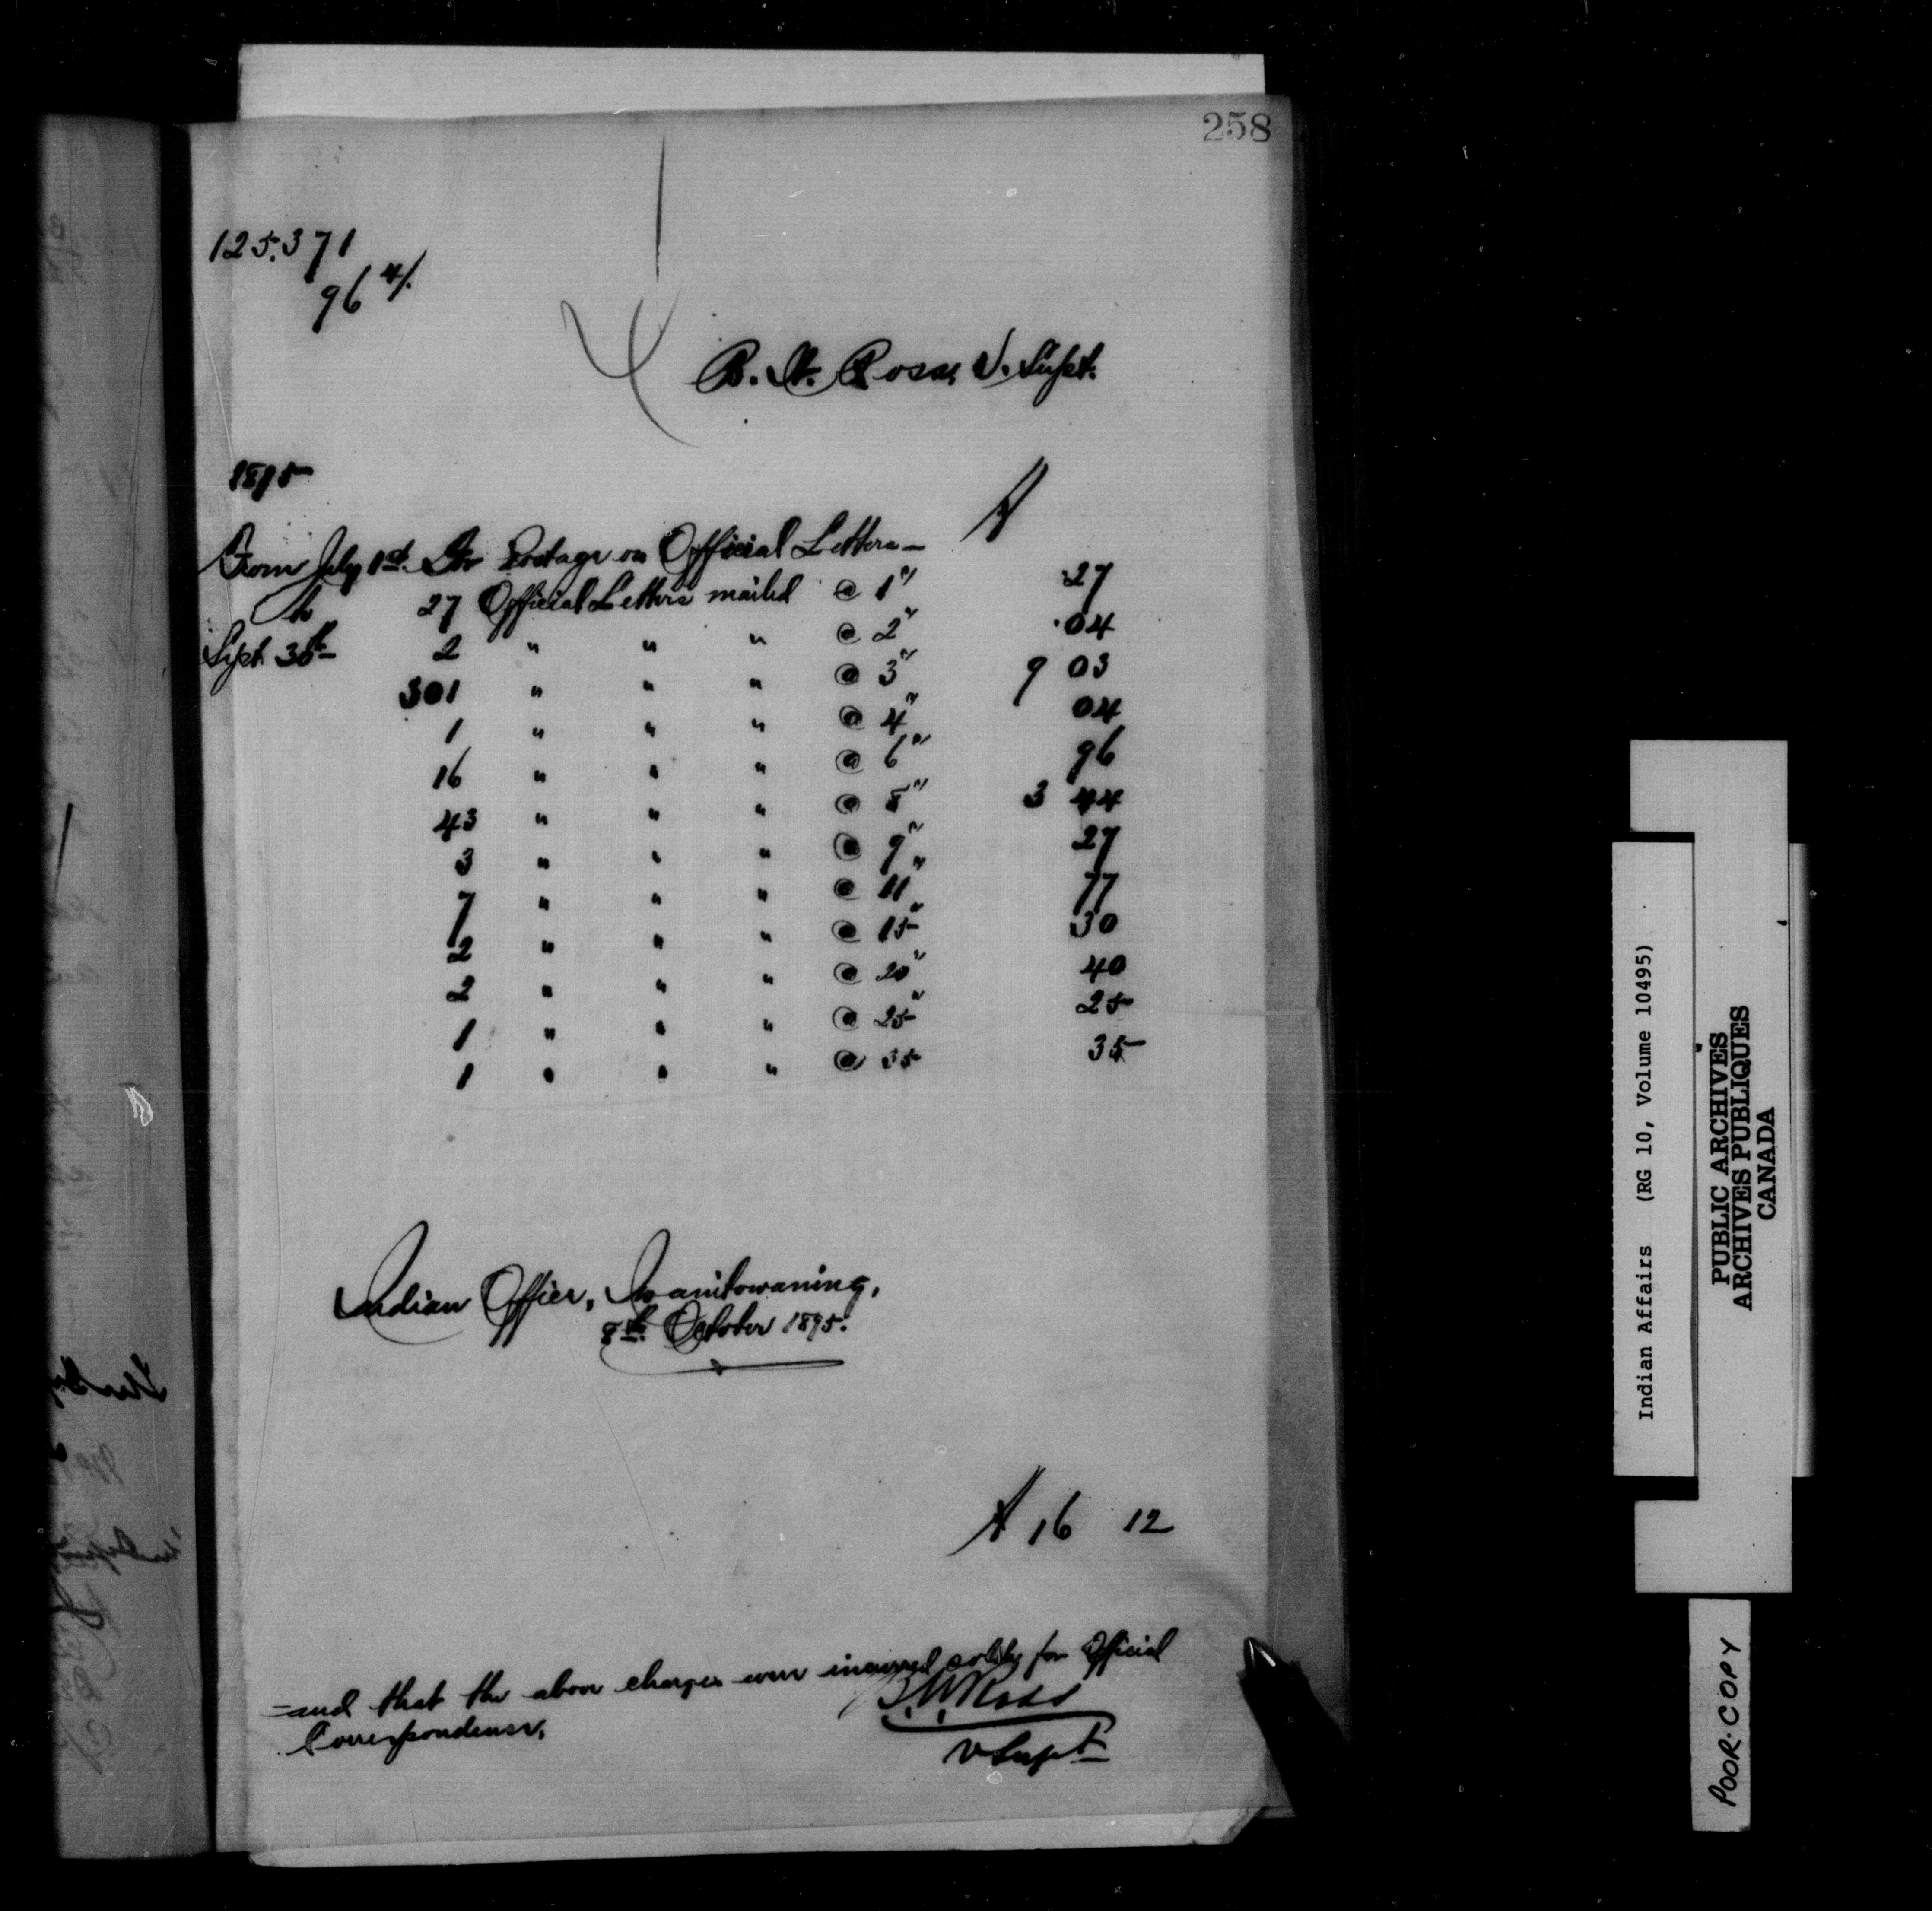 258
125.371
96 4/.
B. W. Ross, V. Supt.
1895
From July 1st. To Postage on Official Letters —
to 27 Official Letters mailed @ 1" .27
Sept. 30th — 2 " " " @ 2" .04
301 " " " @ 3" 9 03
1 " " " @ 4" 04
16 " " " @ 6" 96
43 " " " @ 8" 3 44
3 " " " @ 9" 27
7 " " " @ 11" 77
2 " " " @ 15" 30
2 " " " @ 20" 40
1 " " " @ 25" 25
1 " " " @ 35 35
Indian Office, Manitowaning,
8th. October 1895.
$ 16 12
and that the above charges were incurred solely for Official
Correspondence.
B.W. Ross
V Supt
Indian Affairs (RG 10, Volume 10495)
PUBLIC ARCHIVES
ARCHIVES PUBLIQUES
CANADA
POOR COPY